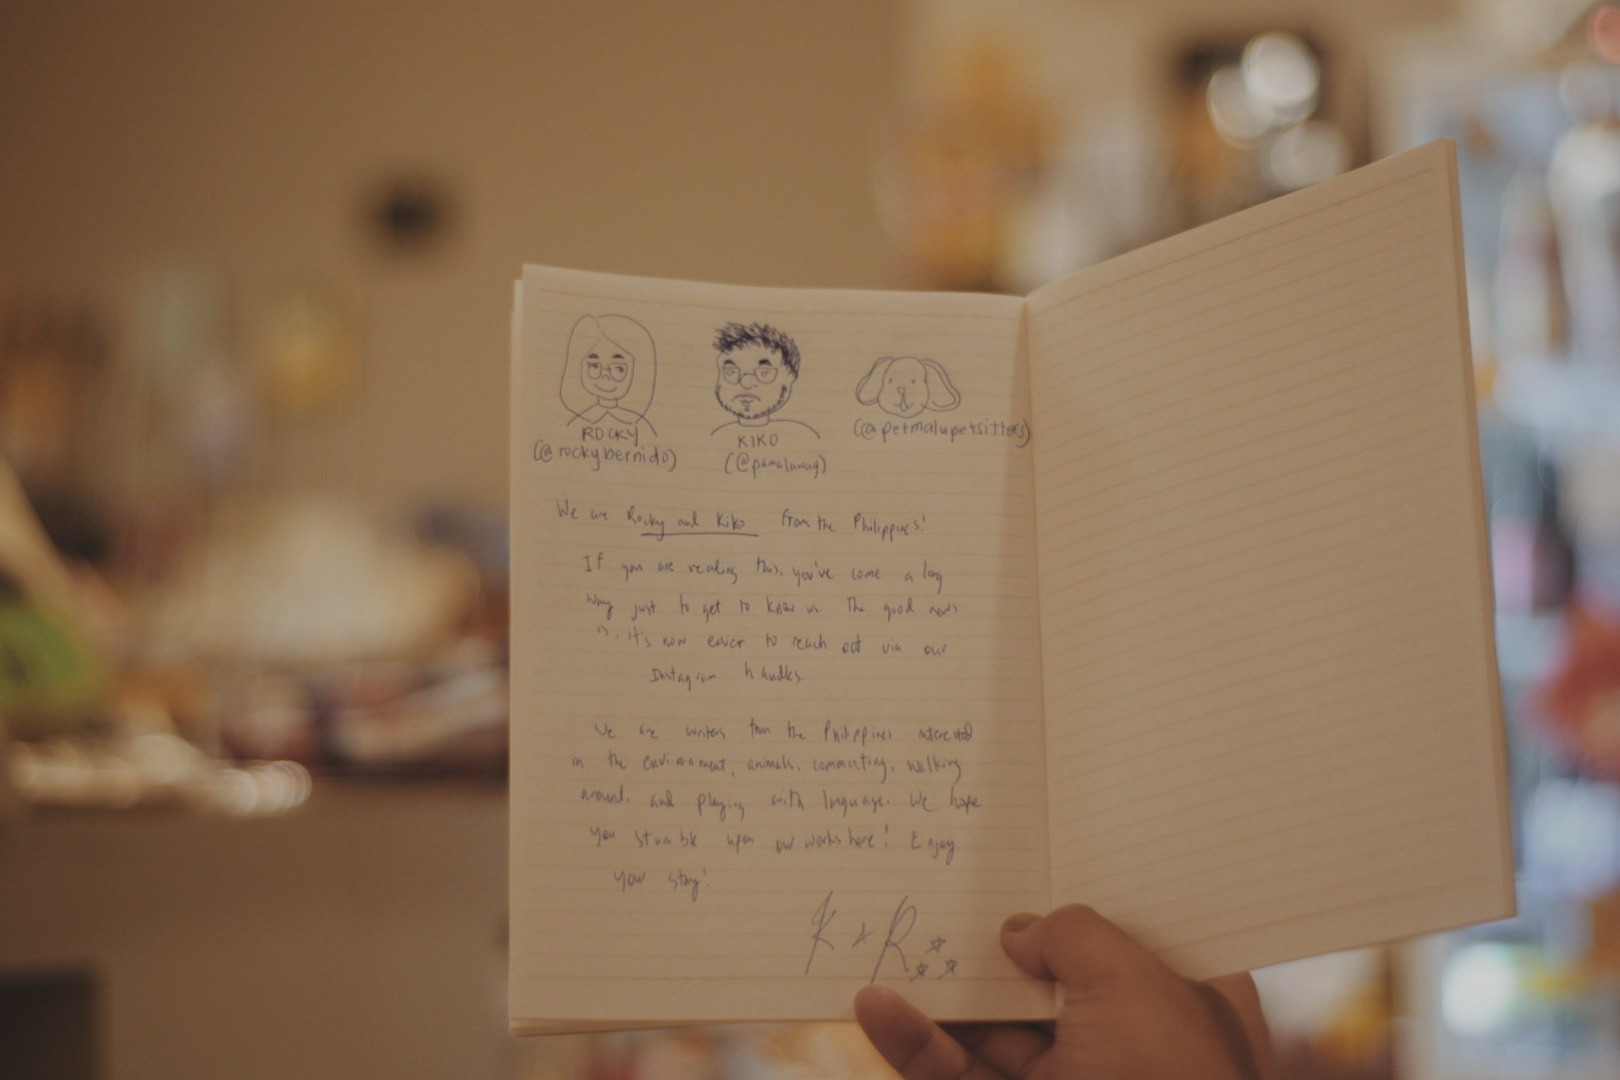 ROCKY
(@rockybernido)
KIKO
(@pamaluwag)
(@petmalupetsitters)
We are Rocky and Kiko from the Philippines!
If you are reading this, you've come a long
way just to get to know us. The good news
is, it's now easier to reach out via our
Instagram handles.
We are writers from the Philippines interested
in the environment, animals, commuting, walking
around, and playing with language. We hope
you stumble upon our works here! Enjoy
your stay!
K + R